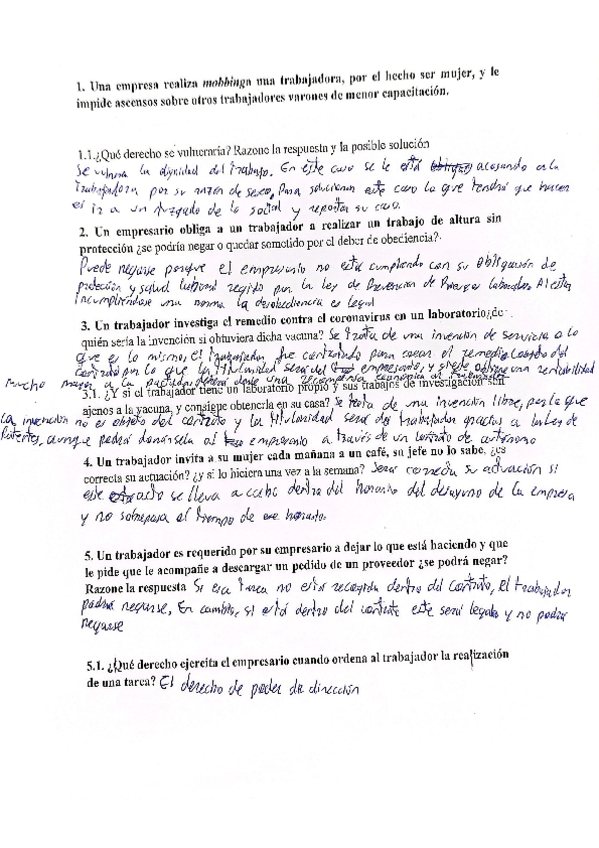 1. Una empresa realiza mobbinga una trabajadora, por el hecho ser mujer, y le
impide ascensos sobre otros trabajadores varones de menor capacitación.
1.1.¿Qué derecho se vulneraría? Razone la respuesta y la posible solución
Se vulnera la dignidad del trabajo. En este caso se le está acosando a la
trabajadora por su razón de sexo, Para solucionar este caso lo que tendrá que hacer
es ir a un juzgado de lo social y reportar su caso.
2. Un empresario obliga a un trabajador a realizar un trabajo de altura sin
protección ¿se podría negar o quedar sometido por el deber de obediencia?
Puede negarse porque el empresario no está cumpliendo con su obligación de
protección y salud laboral regido por la Ley de Prevención de Riesgos Laborales. Al estar
incumpliéndose una norma la desobediencia es legal
3. Un trabajador investiga el remedio contra el coronavirus en un laboratorio¿de
quién sería la invención si obtuviera dicha vacuna? Se trata de una invención de servicio o lo
que es lo mismo, el trabajador fue contratado para crear el remedio
contrato por lo que la titularidad será del empresario, y si este obtiene una rentabilidad
mucho mayor a la una recompensa económica al trabajador
3.1. ¿Y si el trabajador tiene un laboratorio propio y sus trabajos de investigación son
ajenos a la vacuna, y consigue obtenerla en su casa? Se trata de una invención libre, por lo que
la invención no es objeto del contrato y la titularidad será del trabajador gracias a la Ley de
Patentes, aunque podrá donársela al empresario a través de un contrato de autónomo
4. Un trabajador invita a su mujer cada mañana a un café, su jefe no lo sabe, ¿es
correcta su actuación? ¿y si lo hiciera una vez a la semana? Sería correcta su actuación si
este acto se lleva a cabo dentro del horario del desayuno de la empresa
y no sobrepasa el tiempo de ese horario.
5. Un trabajador es requerido por su empresario a dejar lo que está haciendo y que
le pide que le acompañe a descargar un pedido de un proveedor ¿se podrá negar?
Razone la respuesta Si esa tarea no está recogida dentro del contrato, el trabajador
podrá negarse, En cambio, si está dentro del contrato este será legal y no podrá
negarse
5.1. ¿Qué derecho ejercita el empresario cuando ordena al trabajador la realización
de una tarea? El derecho de poder de dirección